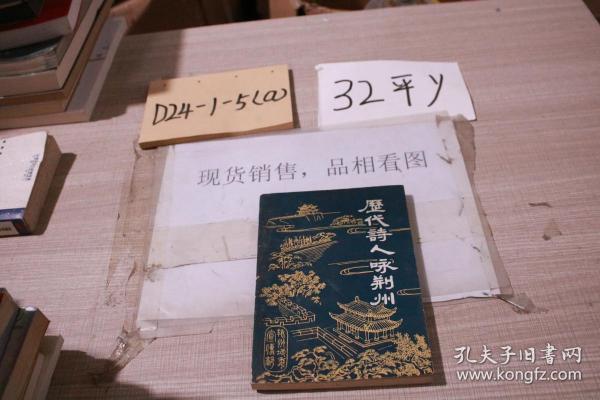 D24-1-5(a)
32平y
现货销售，品相看图
歷代詩人咏荆州
孔夫子旧书网
www.kongfz.com